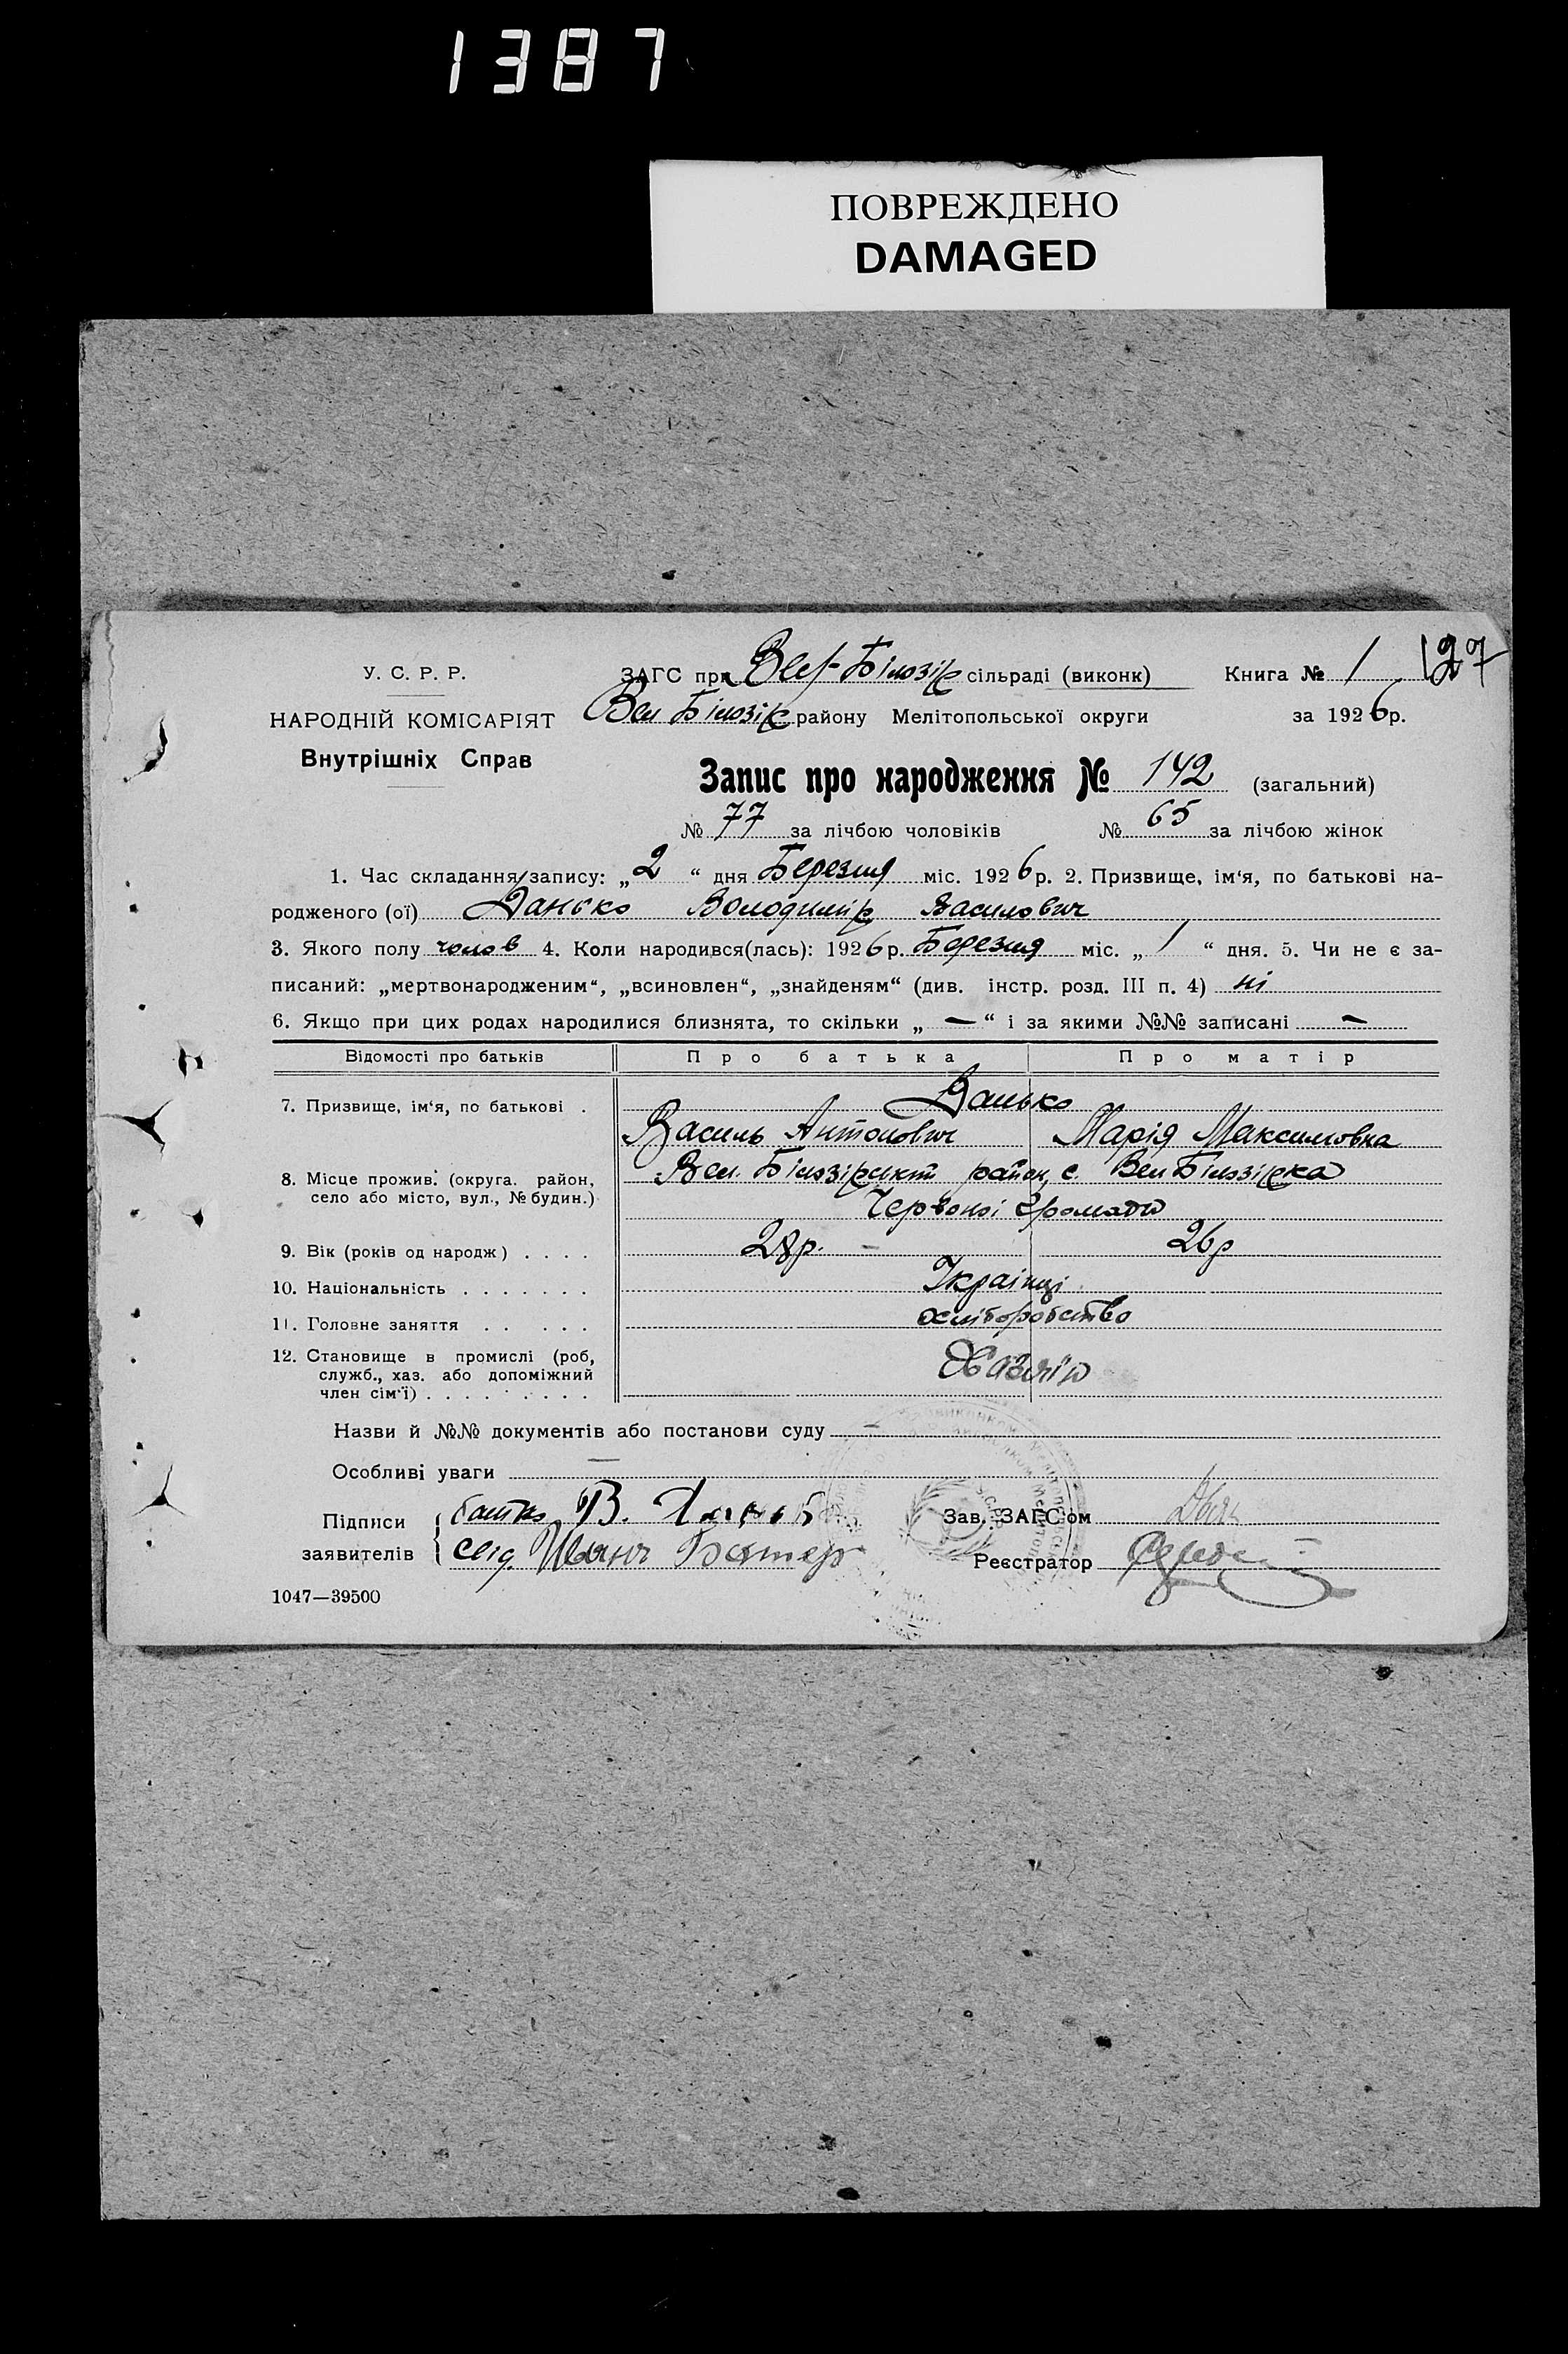 1387
ПОВРЕЖДЕНО
DAMAGED
127
У. С. Р. Р.
НАРОДНІЙ КОМІСАРІЯТ
Внутрішніх Справ
ЗАГС при Вел-Білозір сільраді (виконк) Книга № 1
Вел Білозір району Мелітопольської округи за 1926 р.
Запис про народження № 142 (загальний)
№ 77 за лічбою чоловіків № 65 за лічбою жінок
1. Час складання запису: „2“ дня Березня міс. 1926 р. 2. Призвище, ім‘я, по батькові на-
родженого (ої) Данько Володимір Василович
3. Якого полу чолов 4. Коли народився(лась): 1926 р. Березня міс. „1“ дня. 5. Чи не є за-
писаний: „мертвонародженим“, „всиновлен“, „знайденям“ (див. інстр. розд. III п. 4) ні
6. Якщо при цих родах народилися близнята, то скільки „—“ і за якими №№ записані —
Відомості про батьків Про батька Про матір
7. Призвище, ім‘я, по батькові . Данько
Василь Антонович Марія Максимовна
8. Місце прожив. (округа. район, село або місто, вул., № будин.) Вел. Білозірський район, с. Вел Білозірка
Червоної Громади
9. Вік (років од народж) . . . . 28 р. 26 р
10. Національність . . . . . . . Українці
11. Головне заняття . . . . . хліборобство
12. Становище в промислі (роб,
служб., хаз. або допоміжний
член сім‘ї) . . . . . . . . . Хазяїн
Назви й №№ документів або постанови суду —
Особливі уваги —
Підписи заявителів
батько В.
свід. Иванъ
Зав. ЗАГС‘ом
Реєстратор
1047—39500